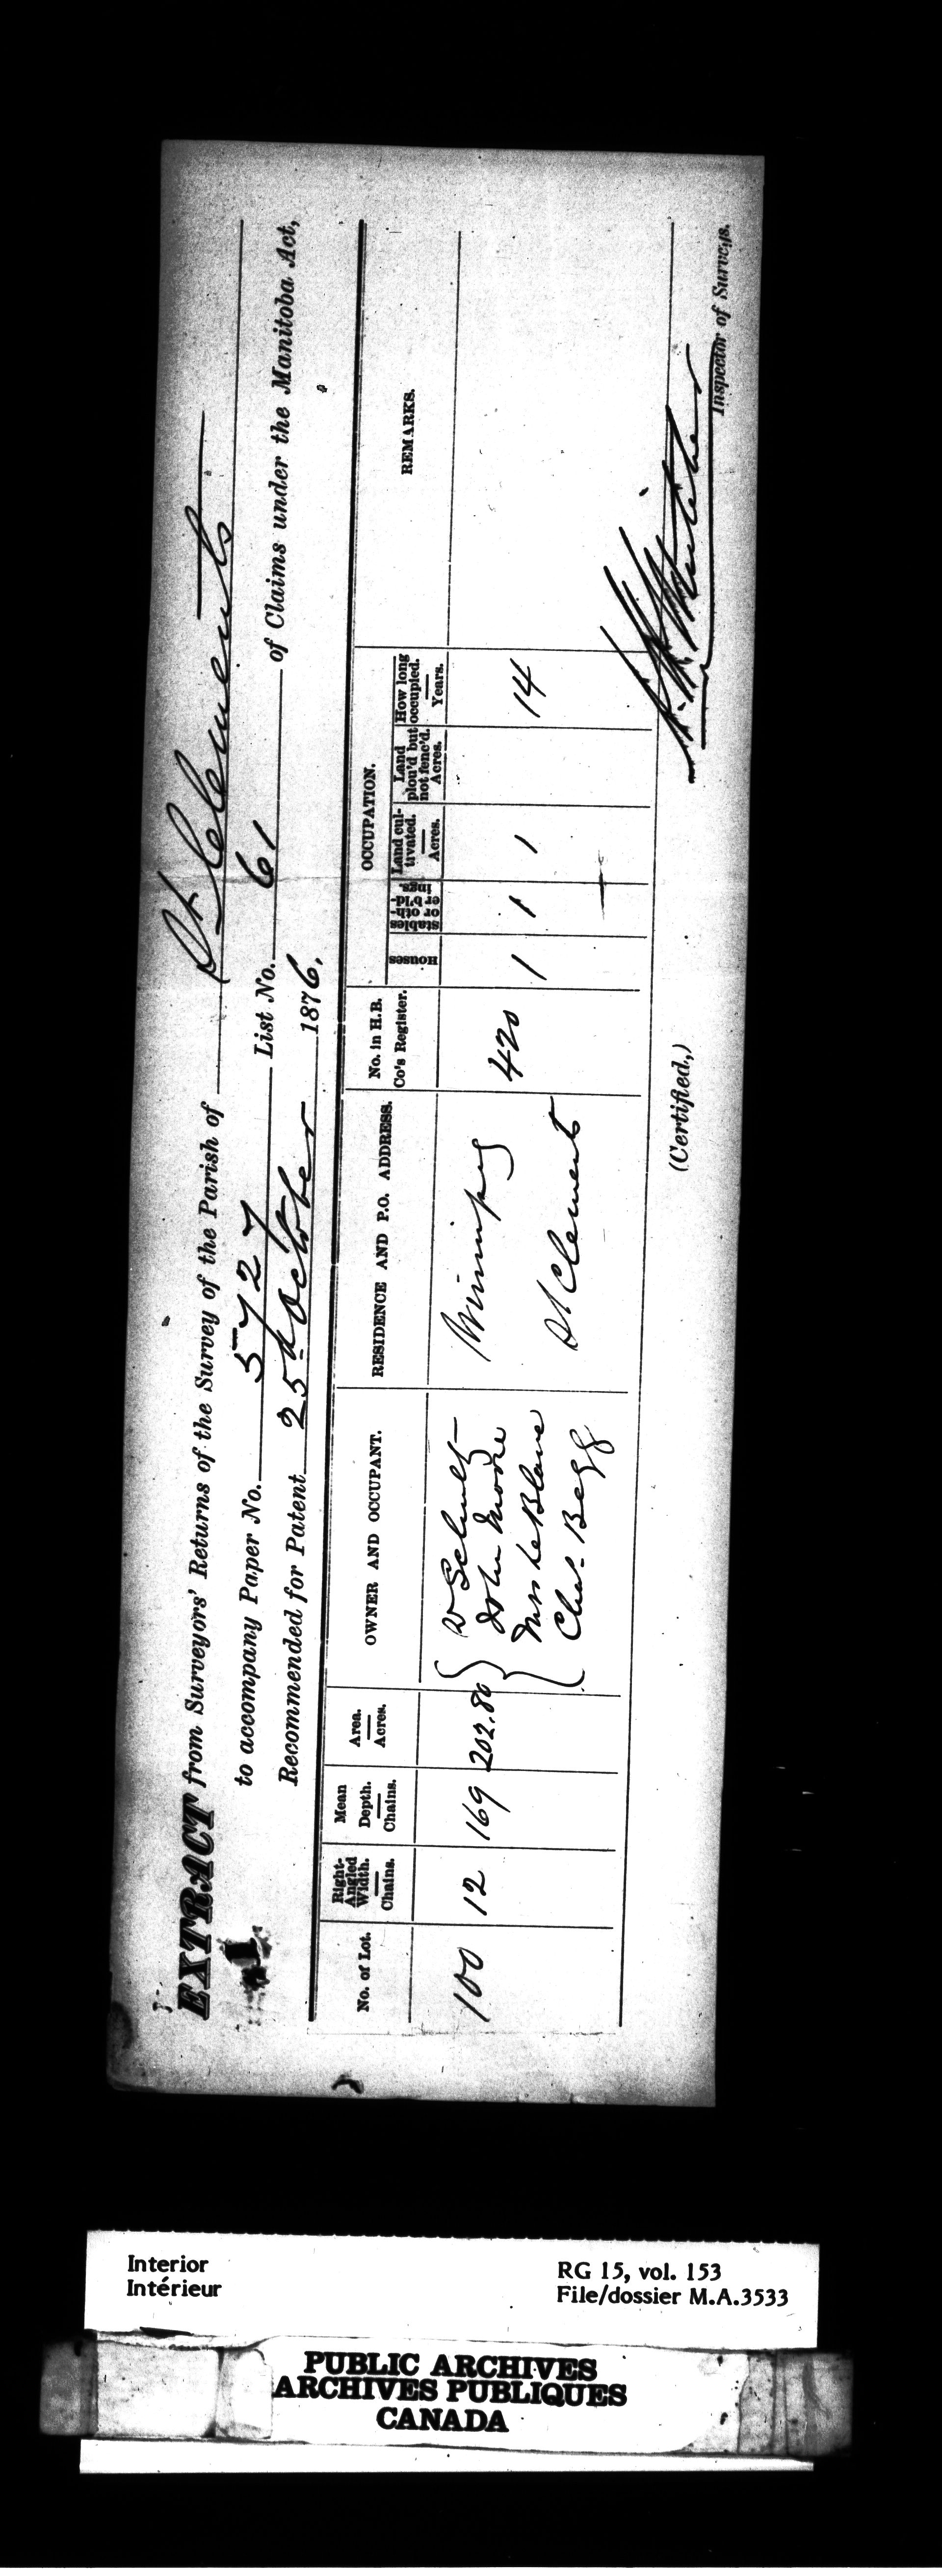 EXTRACT from Surveyors' Returns of the Survey of the Parish of St Clements
to accompany Paper No. 5727 List No. 61 of Claims under the Manitoba Act,
Recommended for Patent 25th October 1876.
No. of Lot.
Right-Angled Width. — Chains.
Mean Depth. — Chains.
Area. — Acres.
OWNER AND OCCUPANT.
RESIDENCE AND P.O. ADDRESS.
No. in H.B. Co's Register.
OCCUPATION.
Houses
stables or other b'ld-ings
Land cul-tivated. — Acres.
Land plou'd but not fenc'd. Acres.
How long occupied. — Years.
REMARKS.
100 12 169 202.80 Dr Schultz Winnipeg
John Moore 420 1 1 1 14
Chas. Begg St Clements
(Certified,)
Inspector of Surveys.
Interior
Intérieur
RG 15, vol. 153
File/dossier M.A.3533
PUBLIC ARCHIVES
ARCHIVES PUBLIQUES
CANADA